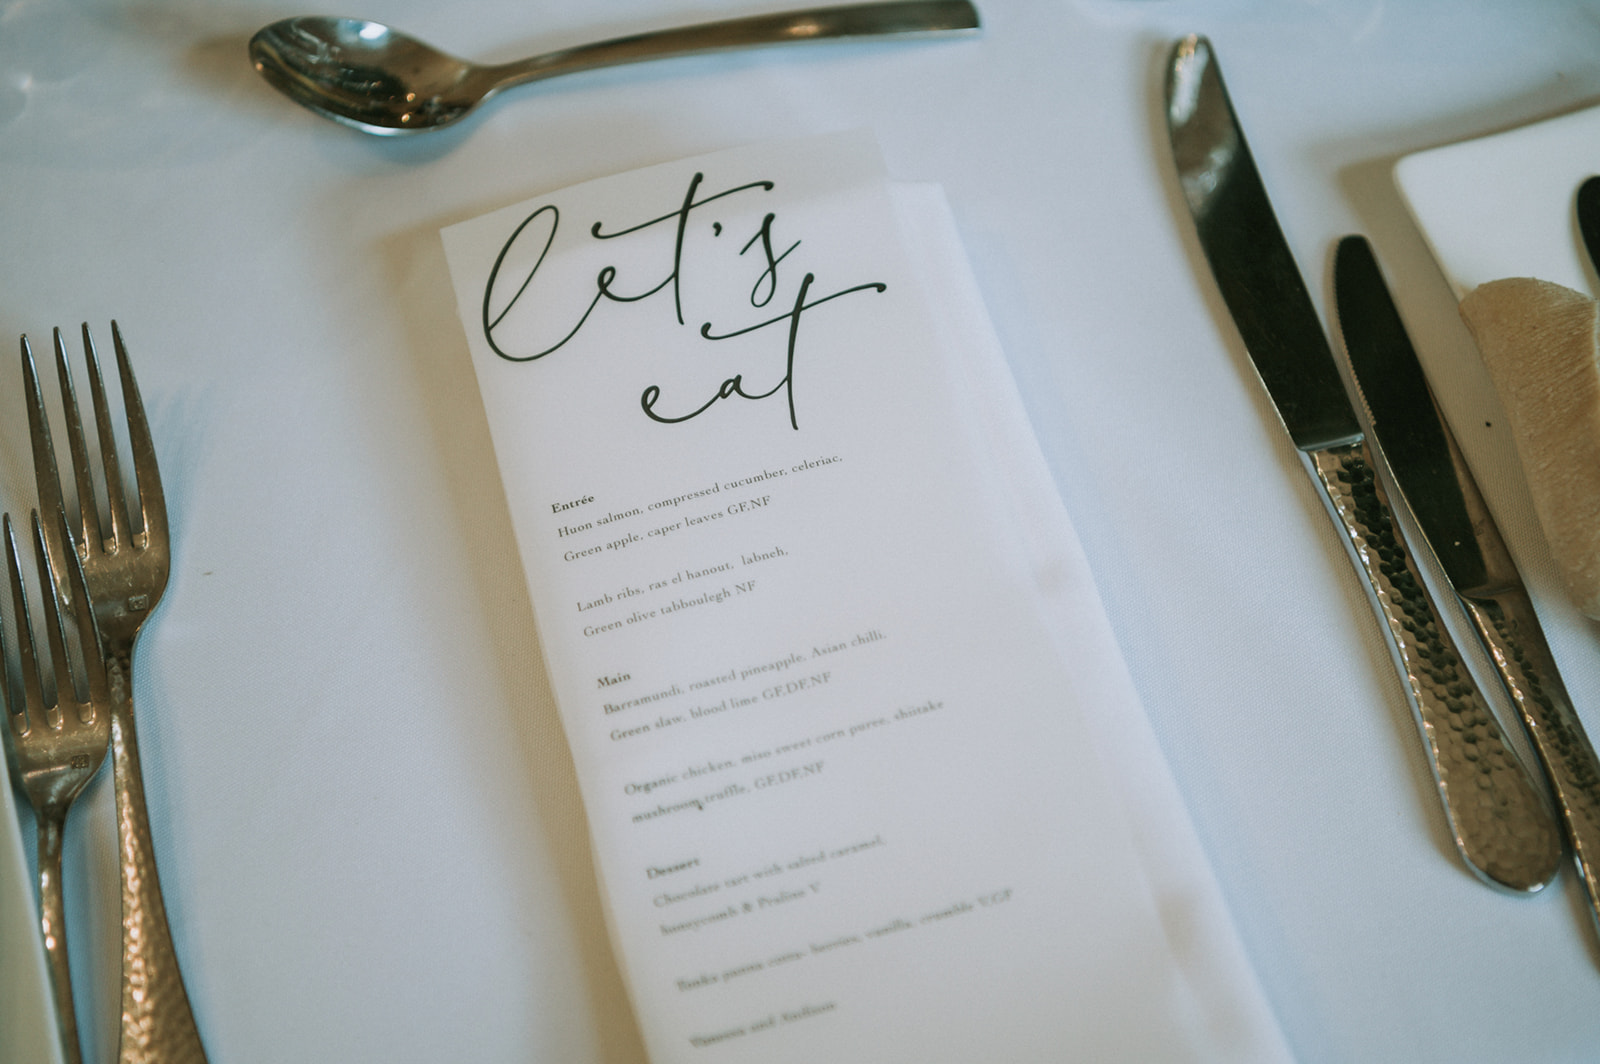 let's
eat
Entrée
Huon salmon, compressed cucumber, celeriac,
Green apple, caper leaves GF,NF
Lamb ribs, ras el hanout, labneh,
Green olive tabboulegh NF
Main
Barramundi, roasted pineapple, Asian chilli,
Green slaw, blood lime GF,DF,NF
Organic chicken, miso sweet corn puree, shiitake
mushroom, truffle, GF,DF,NF
Dessert
Chocolate tart with salted caramel,
honeycomb & Praline V
Tonka panna cotta- berries, vanilla, crumble V,GF
Vanessa and